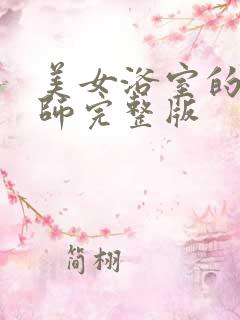 美女浴室的
師完整版
简栩